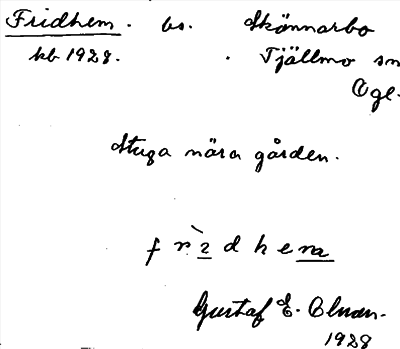 Fridhem. bs. Skönnarbo
kb 1928. Tjällmo sn
Ögl.
Stuga nära gården.
Gustaf E.
1928